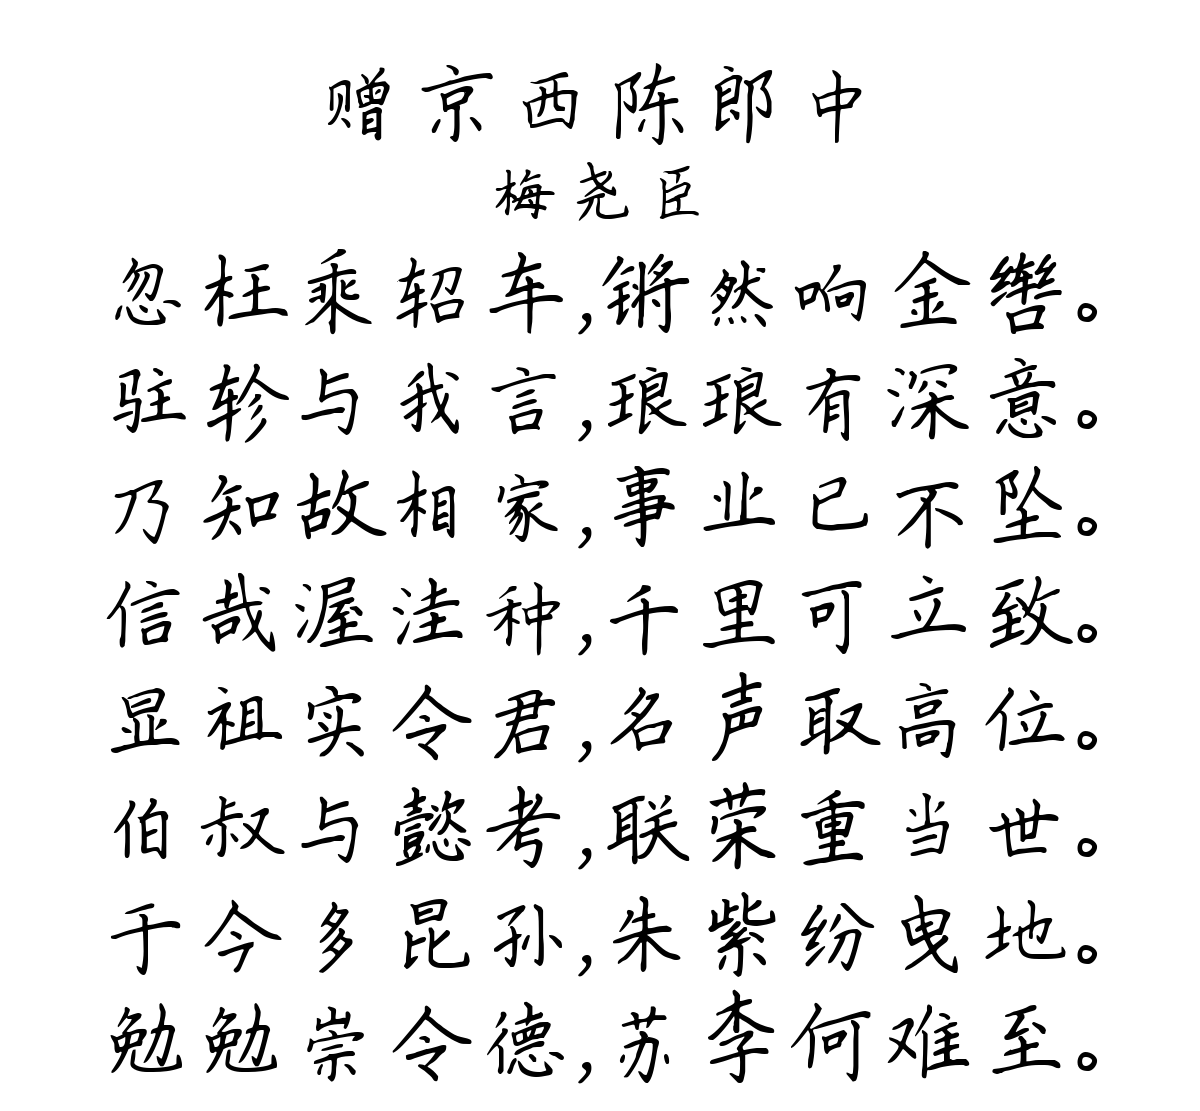 赠京西陈郎中
梅尧臣
忽枉乘轺车,锵然响金辔。
驻轸与我言,琅琅有深意。
乃知故相家,事业已不坠。
信哉渥洼种,千里可立致。
显祖实令君,名声取高位。
伯叔与懿考,联荣重当世。
于今多昆孙,朱紫纷曳地。
勉勉崇令德,苏李何难至。